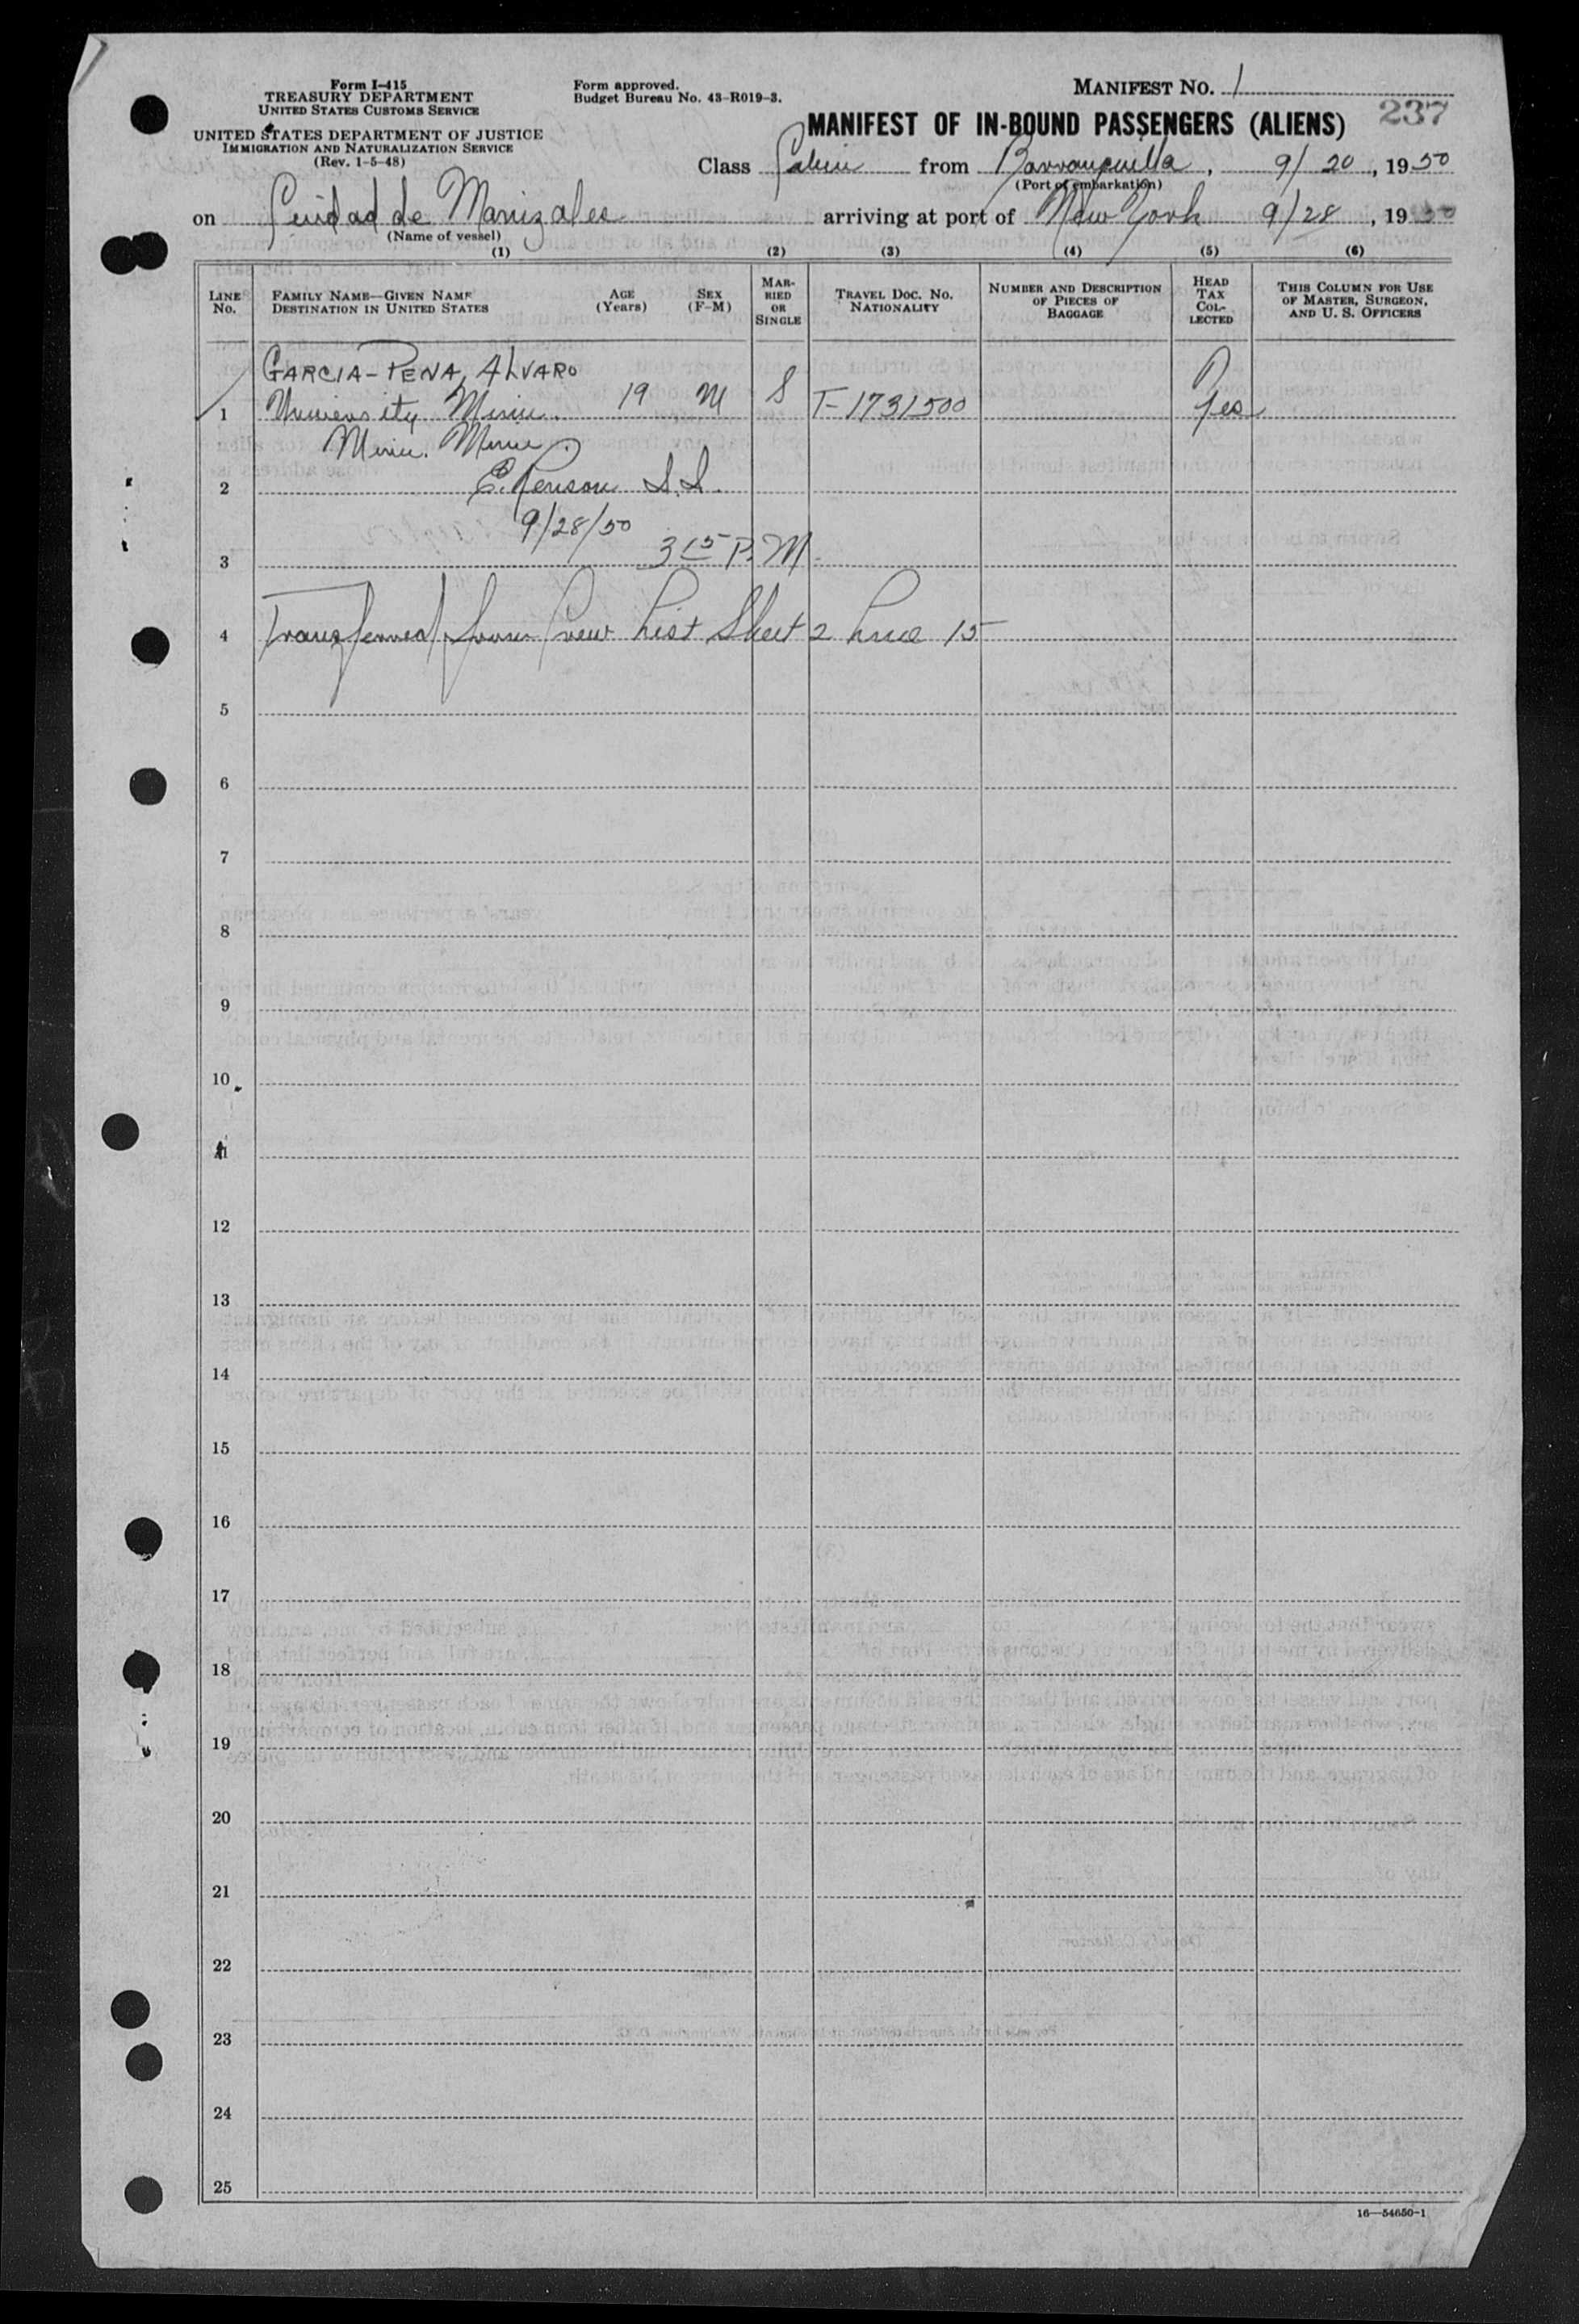 Form I-415
TREASURY DEPARTMENT
UNITED STATES CUSTOMS SERVICE
UNITED STATES DEPARTMENT OF JUSTICE
IMMIGRATION AND NATURALIZATION SERVICE
(Rev. 1-5-48)
Form approved.
Budget Bureau No. 43-R019-3.
MANIFEST NO. 1
237
MANIFEST OF IN-BOUND PASSENGERS (ALIENS)
Class Cabin from Barranquilla, 9/20, 1950
(Port of embarkation)
on Ciudad de Manizales arriving at port of New York 9/28, 1950
(Name of vessel)
(1) (2) (3) (4) (5) (6)
LINE NO. FAMILY NAME—GIVEN NAME DESTINATION IN UNITED STATES AGE (Years) SEX (F-M) MARRIED OR SINGLE TRAVEL DOC. NO. NATIONALITY NUMBER AND DESCRIPTION OF PIECES OF BAGGAGE HEAD TAX COLLECTED THIS COLUMN FOR USE OF MASTER, SURGEON, AND U. S. OFFICERS
GARCIA-PENA, ALVARO
1 University Minn. 19 M S T-1731500 Yes
Minn. Minn.
2 S.S.
9/28/50
3 3 15 P.M.
4 Transferred from Crew List Sheet 2 Line 15
5
6
7
8
9
10
11
12
13
14
15
16
17
18
19
20
21
22
23
24
25
16—54650-1